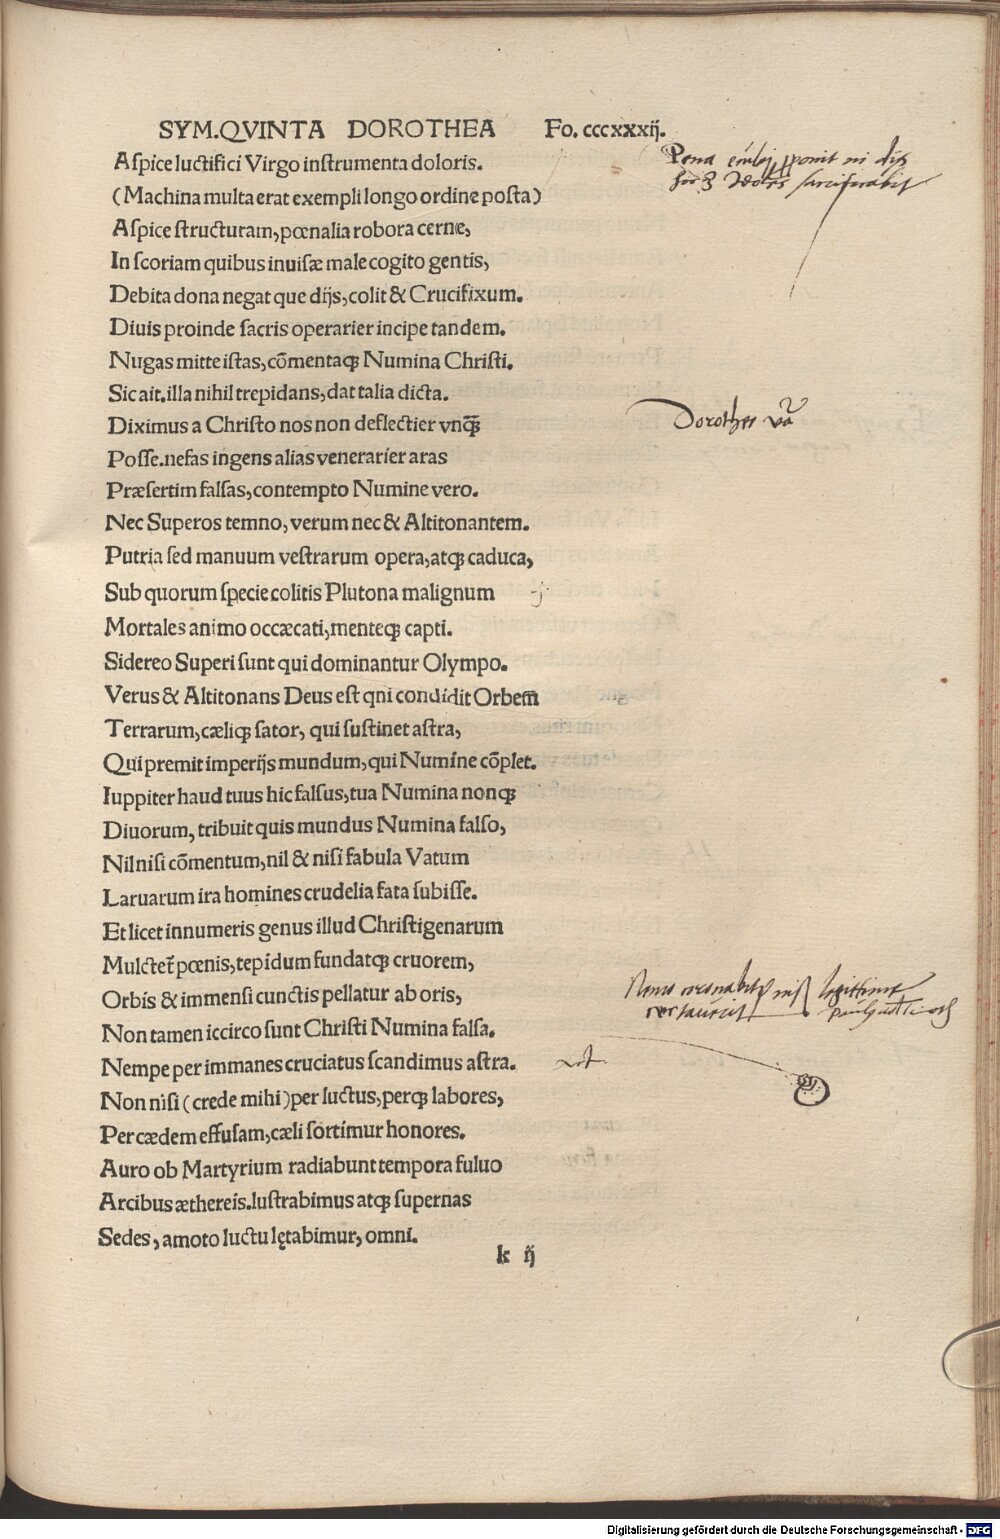 SYM.QVINTA DOROTHEA Fo. cccxxxij.
Aſpice luctifici Virgo inſtrumenta doloris.
(Machina multa erat exempli longo ordine poſta)
Aſpice ſtructuram, pœnalia robora cerne,
In ſcoriam quibus inuiſæ male cogito gentis,
Debita dona negat que dijs, colit & Crucifixum.
Diuis proinde ſacris operarier incipe tandem.
Nugas mitte iſtas, cõmentaqꝫ Numina Chriſti.
Sic ait. illa nihil trepidans, dat talia dicta.
Dorothee
Diximus a Chriſto nos non deflectier vnqꝫ̃
Poſſe. nefas ingens alias venerarier aras
Præſertim falſas, contempto Numine vero.
Nec Superos temno, verum nec & Altitonantem.
Putria ſed manuum veſtrarum opera, atqꝫ caduca,
Sub quorum ſpecie colitis Plutona malignum
Mortales animo occæcati, menteqꝫ capti.
Sidereo Superi ſunt qui dominantur Olympo.
Verus & Altitonans Deus eſt qni condidit Orbem̃
Terrarum, cæliqꝫ ſator, qui ſuſtinet aſtra,
Qui premit imperijs mundum, qui Numine cõplet.
Iuppiter haud tuus hic falſus, tua Numina nonqꝫ
Diuorum, tribuit quis mundus Numina falſo,
Nil niſi cõmentum, nil & niſi fabula Vatum
Laruarum ira homines crudelia fata ſubiſſe.
Et licet innumeris genus illud Chriſtigenarum
Mulctet᷑ pœnis, tepidum fundatqꝫ cruorem,
Orbis & immenſi cunctis pellatur ab oris,
Non tamen iccirco ſunt Chriſti Numina falſa.
Nempe per immanes cruciatus ſcandimus aſtra.
Non niſi (crede mihi) per luctus, perqꝫ labores,
Per cædem effuſam, cæli ſortimur honores.
Auro ob Martyrium radiabunt tempora fuluo
Arcibus æthereis. luſtrabimus atqꝫ ſupernas
Sedes, amoto luctu lętabimur, omni.
k ij
Digitalisierung gefördert durch die Deutsche Forschungsgemeinschaft - DFG